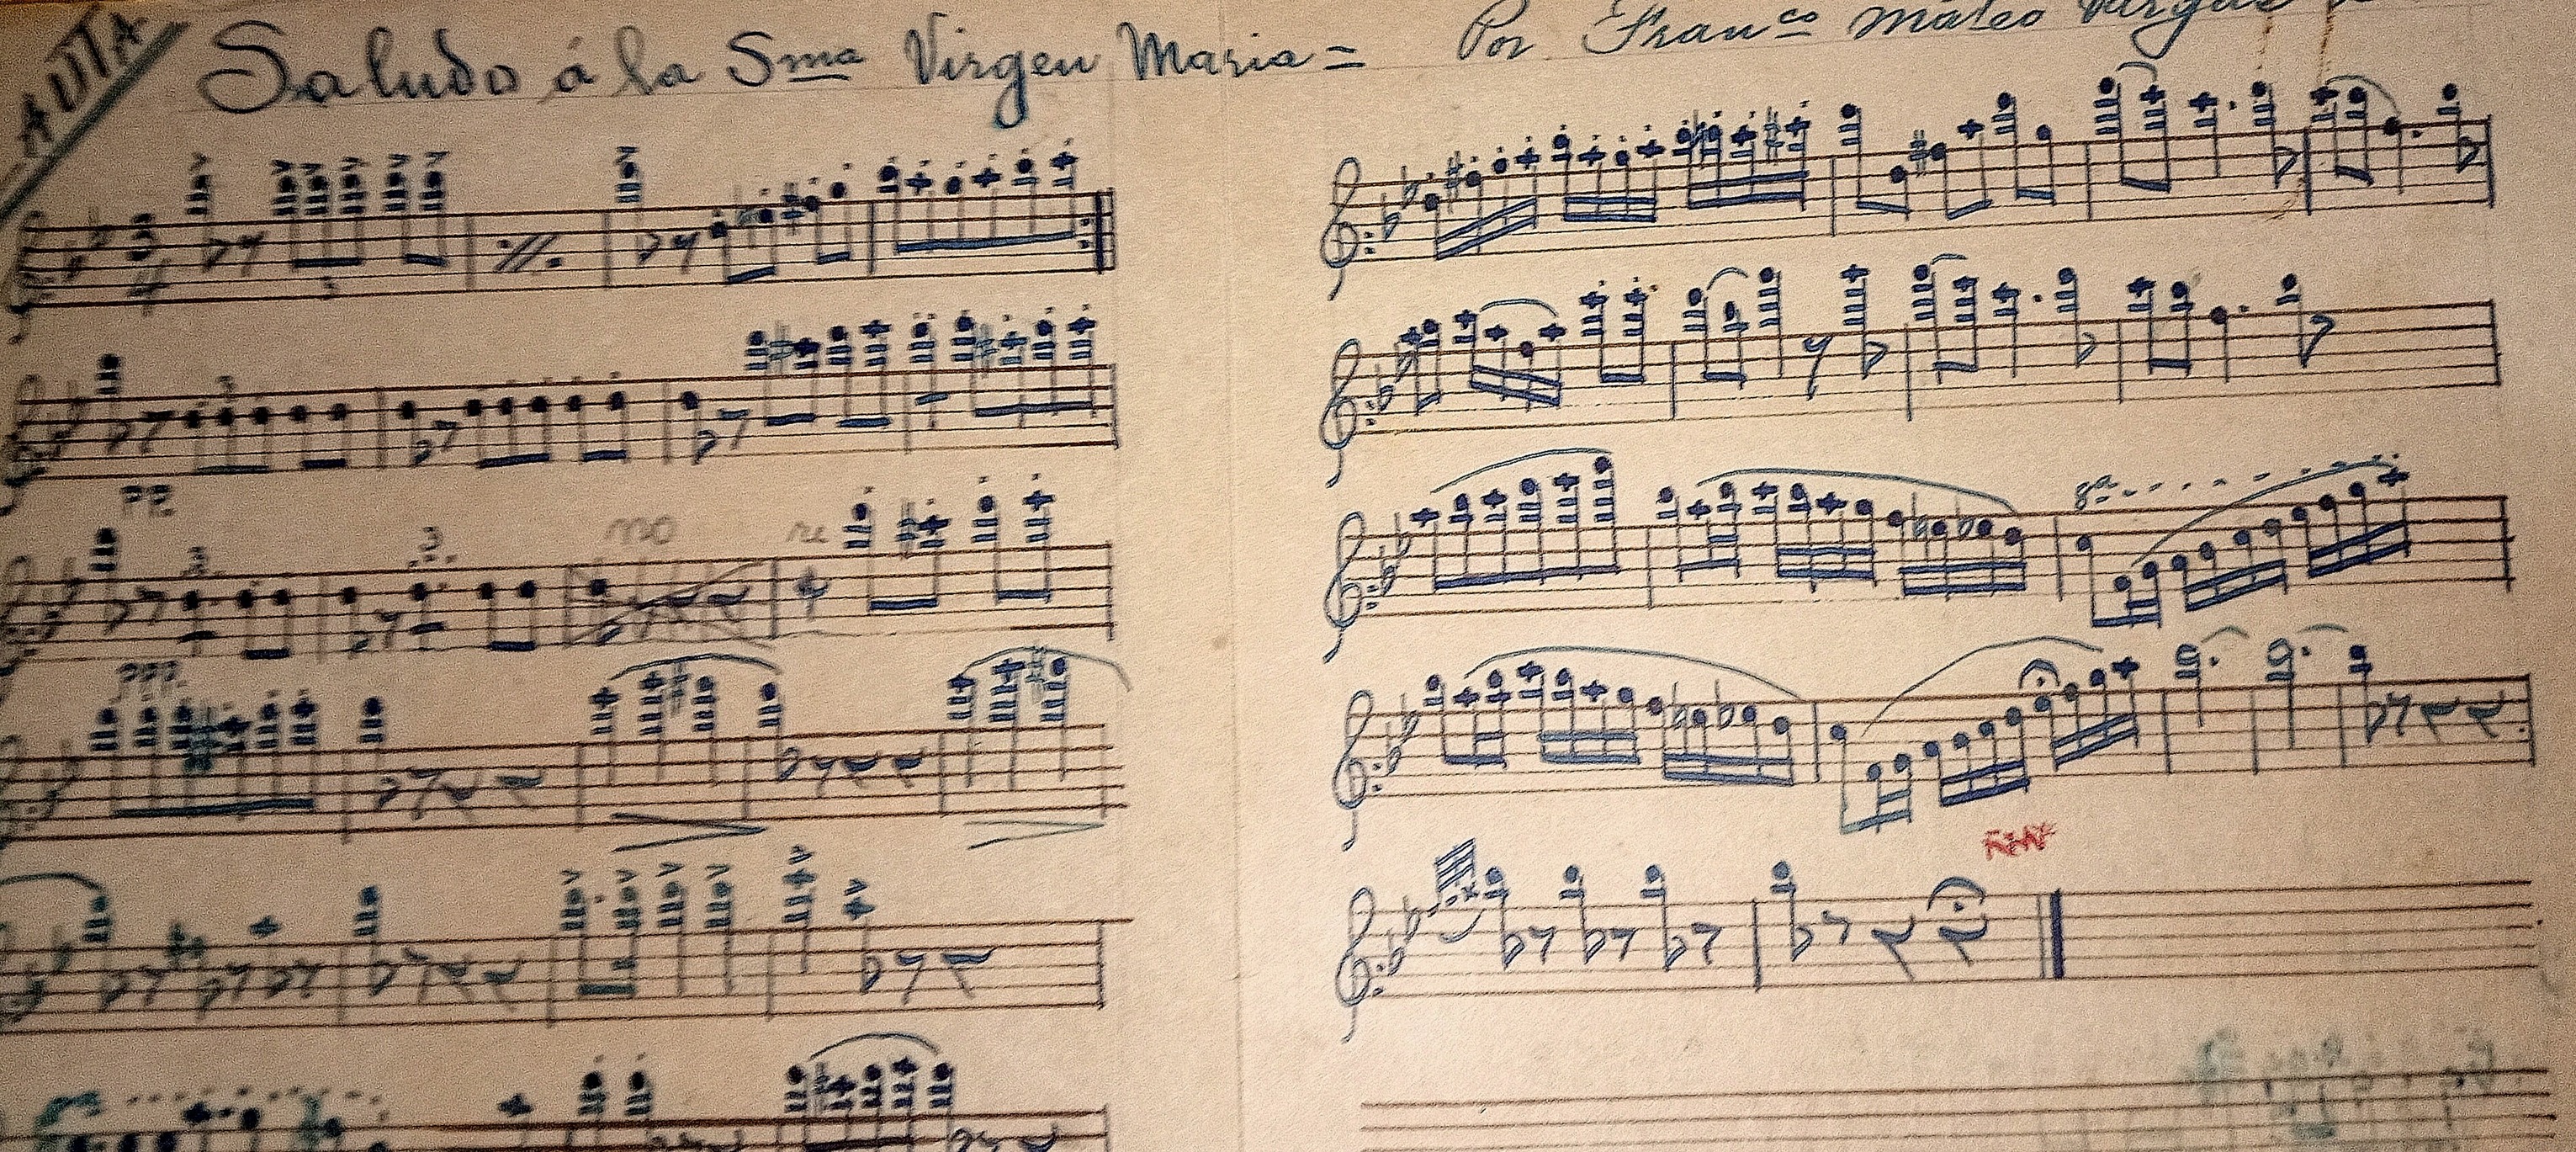 AUTA
Saludo á la Sma Virgen Maria = Por Franco Mateo
3
4
3
3
PP.
3 3 no re
ppp.
8a
FIN